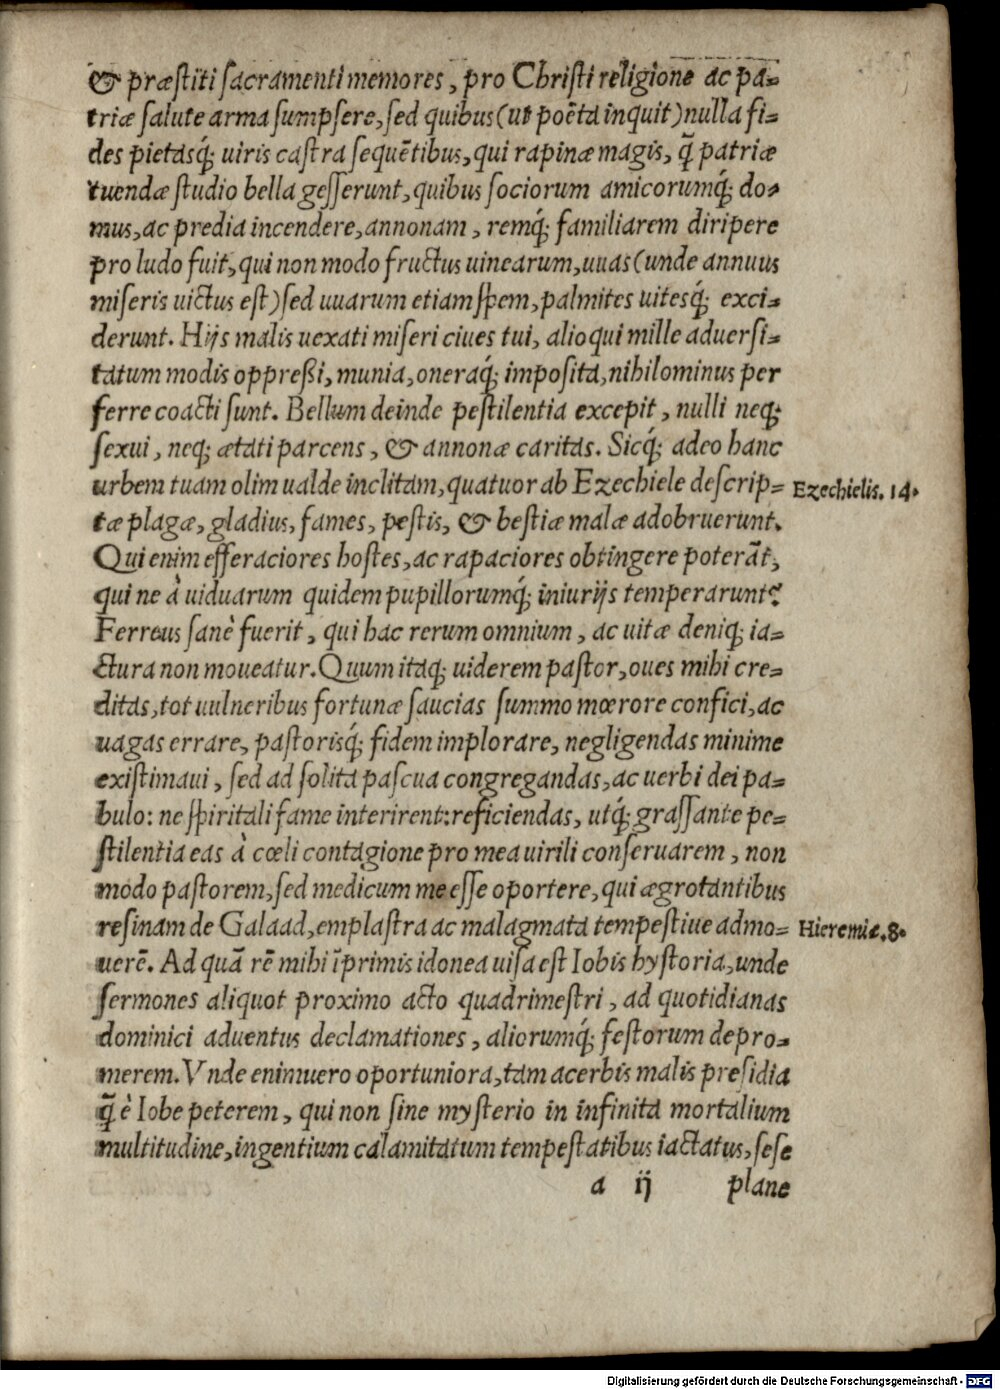 & præſtiti ſacramenti memores, pro Chriſti religione ac pa-
triæ ſalute arma ſumpſere, ſed quibus (ut poëta inquit) nulla fi-
des pietasq́; uiris caſtra ſequētibus, qui rapinæ magis, q̃ patriæ
tuendæ ſtudio bella geſſerunt, quibus ſociorum amicorumq́; do-
mus, ac predia incendere, annonam, remq́; familiarem diripere
pro ludo fuit, qui non modo fructus uinearum, uuas (unde annuus
miſeris uictus eſt) ſed uuarum etiam ſpem, palmites uitesq́; exci-
derunt. Hijs malis uexati miſeri ciues tui, alioqui mille aduerſi-
tatum modis oppreßi, munia, oneraq́; impoſita, nihilominus per
ferre coacti ſunt. Bellum deinde peſtilentia excepit, nulli neq;
ſexui, neq; ætati parcens, & annonæ caritas. Sicq́; adeo hanc
urbem tuam olim ualde inclitam, quatuor ab Ezechiele deſcrip-
Ezechielis. 14.
tæ plagæ, gladius, fames, peſtis, & beſtiæ malæ adobruerunt.
Qui enim efferaciores hoſtes, ac rapaciores obtingere poterãt,
qui ne à uiduarum quidem pupillorumq́; iniurijs temperarunt?
Ferreus ſanè fuerit, qui hac rerum omnium, ac uitæ deniq; ia-
ctura non moueatur. Quum itaq; uiderem paſtor, oues mihi cre-
ditas, tot uulneribus fortunæ ſaucias ſummo mœrore confici, ac
uagas errare, paſtorisq́; fidem implorare, negligendas minime
existimaui, ſed ad ſolita paſcua congregandas, ac uerbi dei pa-
bulo: ne ſpiritali fame interirent: reficiendas, utq́; graſſante pe-
ſtilentia eas à cœli contagione pro mea uirili conſeruarem, non
modo paſtorem, ſed medicum me eſſe oportere, qui ægrotantibus
reſinam de Galaad, emplaſtra ac malagmata tempeſtiue admo-
Hieremiæ. 8.
uerē. Ad quã rē mihi īprimis idonea uiſa eſt Iobis hyſtoria, unde
ſermones aliquot proximo acto quadrimeſtri, ad quotidianas
dominici aduentus declamationes, aliorumq́; feſtorum depro-
merem. Vnde enimuero oportuniora, tam acerbis malis preſidia
q̃ è Iobe peterem, qui non ſine myſterio in infinita mortalium
multitudine, ingentium calamitatum tempeſtatibus iactatus, ſeſe
a ij plane
Digitalisierung gefördert durch die Deutsche Forschungsgemeinschaft - DFG